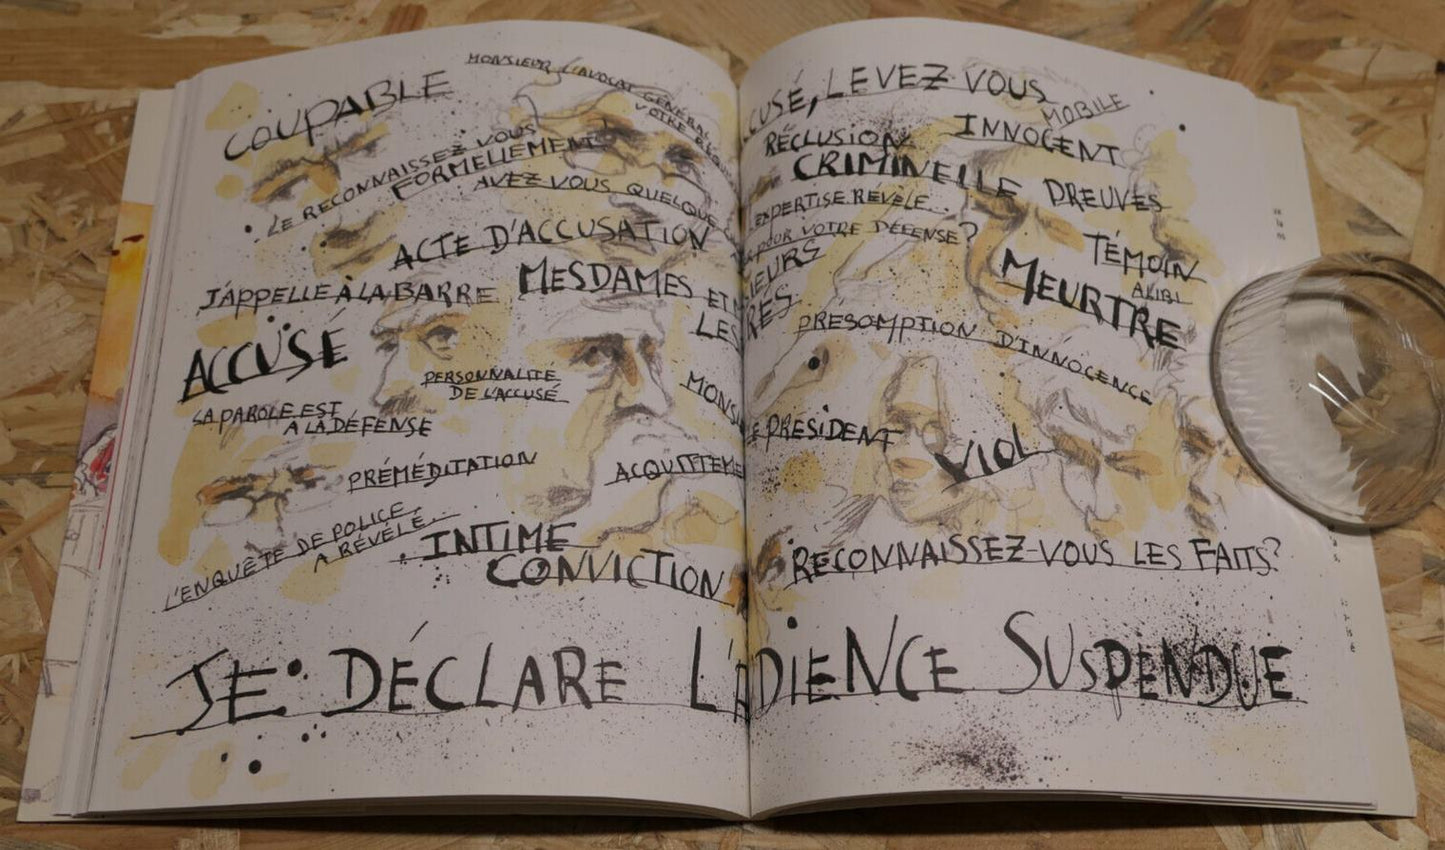 COUPABLE
MONSIEUR L'AVOCAT GÉNÉRAL
VOTRE
LE RECONNAISSEZ VOUS
FORMELLEMENT
AVEZ VOUS QUELQUE
ACTE D'ACCUSATION
J'APPELLE À LA BARRE
MESDAMES ET
LES
ACCUSÉ
PERSONNALITE
DE L'ACCUSÉ
LA PAROLE EST
A LA DÉFENSE
PRÉMÉDITATION
ACQUITTEME
L'ENQUÊTE DE POLICE
A RÉVÉLÉ...
INTIME
CONVICTION
CUSÉ, LEVEZ-VOUS
MOBILE
RÉCLUSION
CRIMINELLE
INNOCENT
PREUVES
L'EXPERTISE RÉVÈLE...
POUR VOTRE DÉFENSE?
IEURS
RÉS
TÉMOIN
ALIBI
MEURTRE
PRÉSOMPTION D'INNOCENCE
MONSI
E PRESIDENT
VIOL
RECONNAISSEZ-VOUS LES FAITS?
JE DÉCLARE L'A DIENCE SUSPENDUE